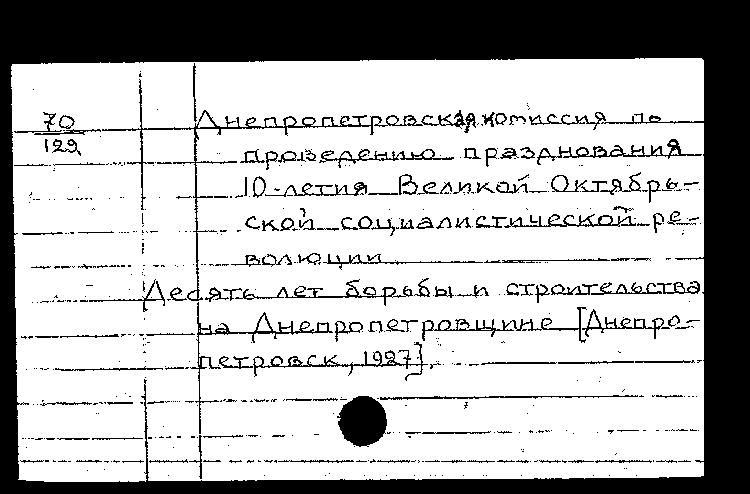 70
129
Днепропетровская комиссия по
проведению празднования
10-летия Великой Октябрь-
ской социалистической ре-
волюции
Десять лет борьбы и строительства
на Днепропетровщине [Днепро-
петровск, 1927].